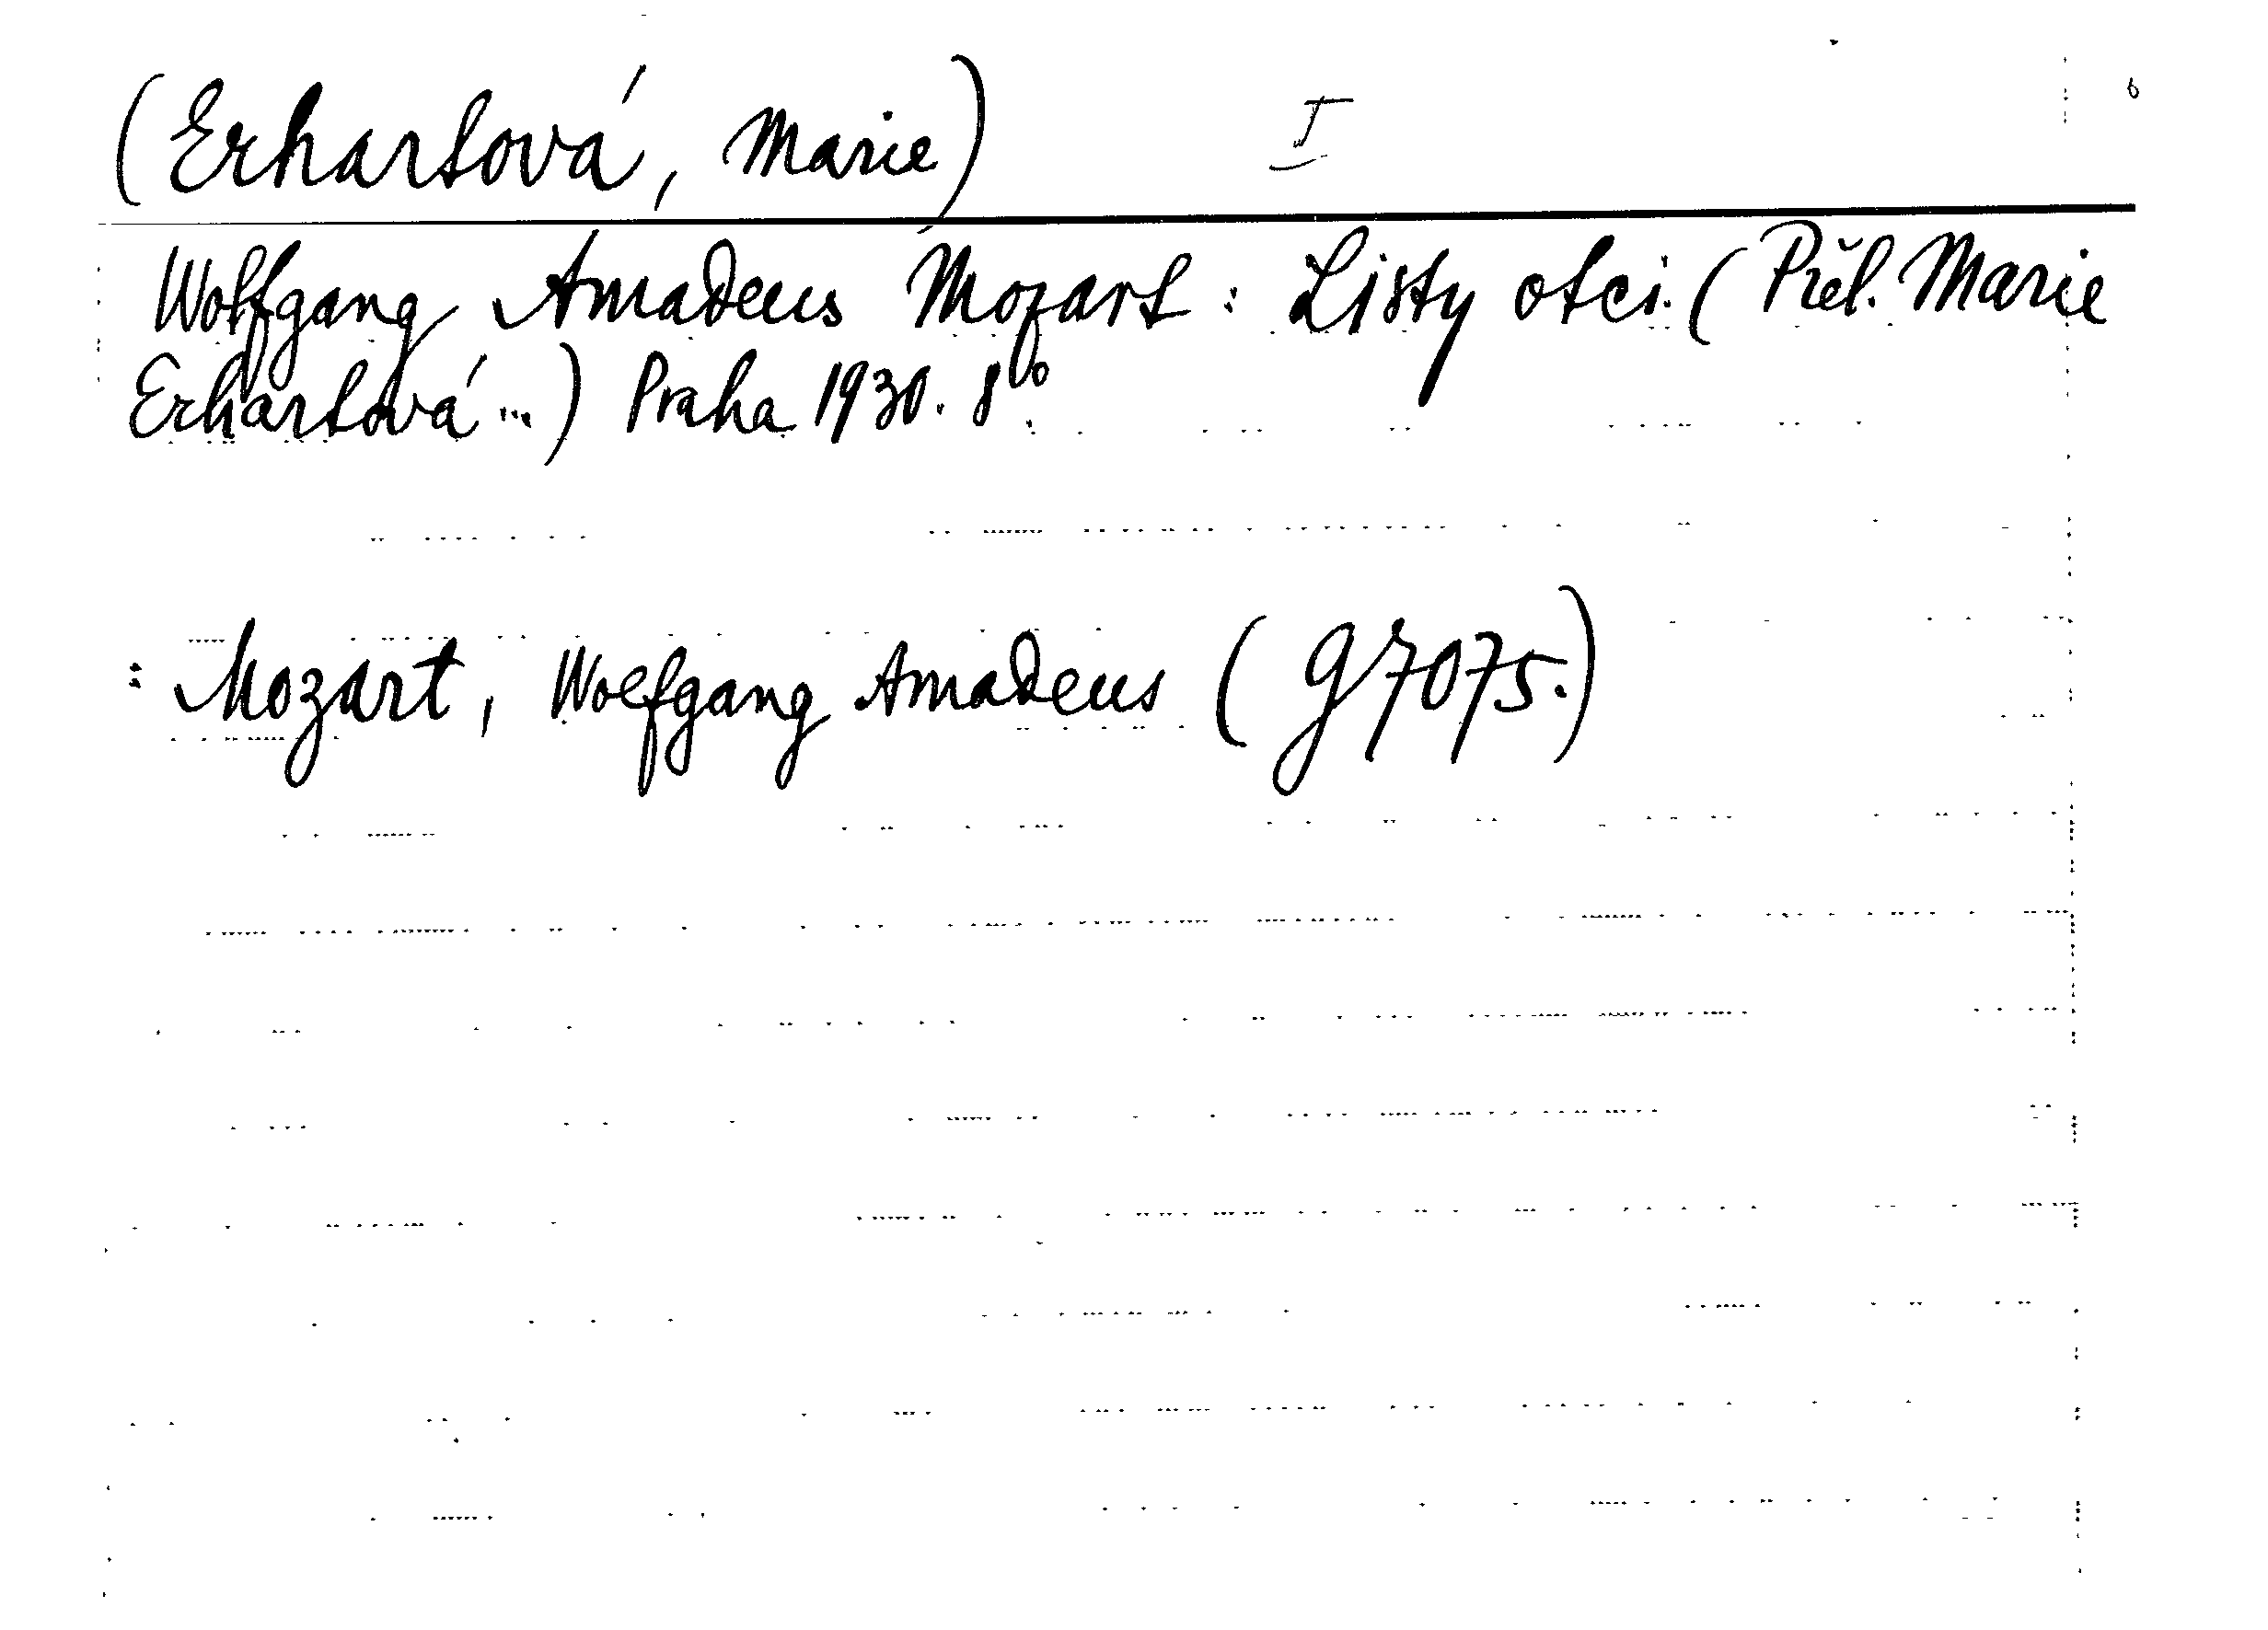 (Erhartová, Marie) I
Wolfgang Amadeus Mozart: Listy otci. (Přel. Marie
Erhartová...) Praha 1930. 8°.
: Mozart, Wolfgang Amadeus (g 7075.)